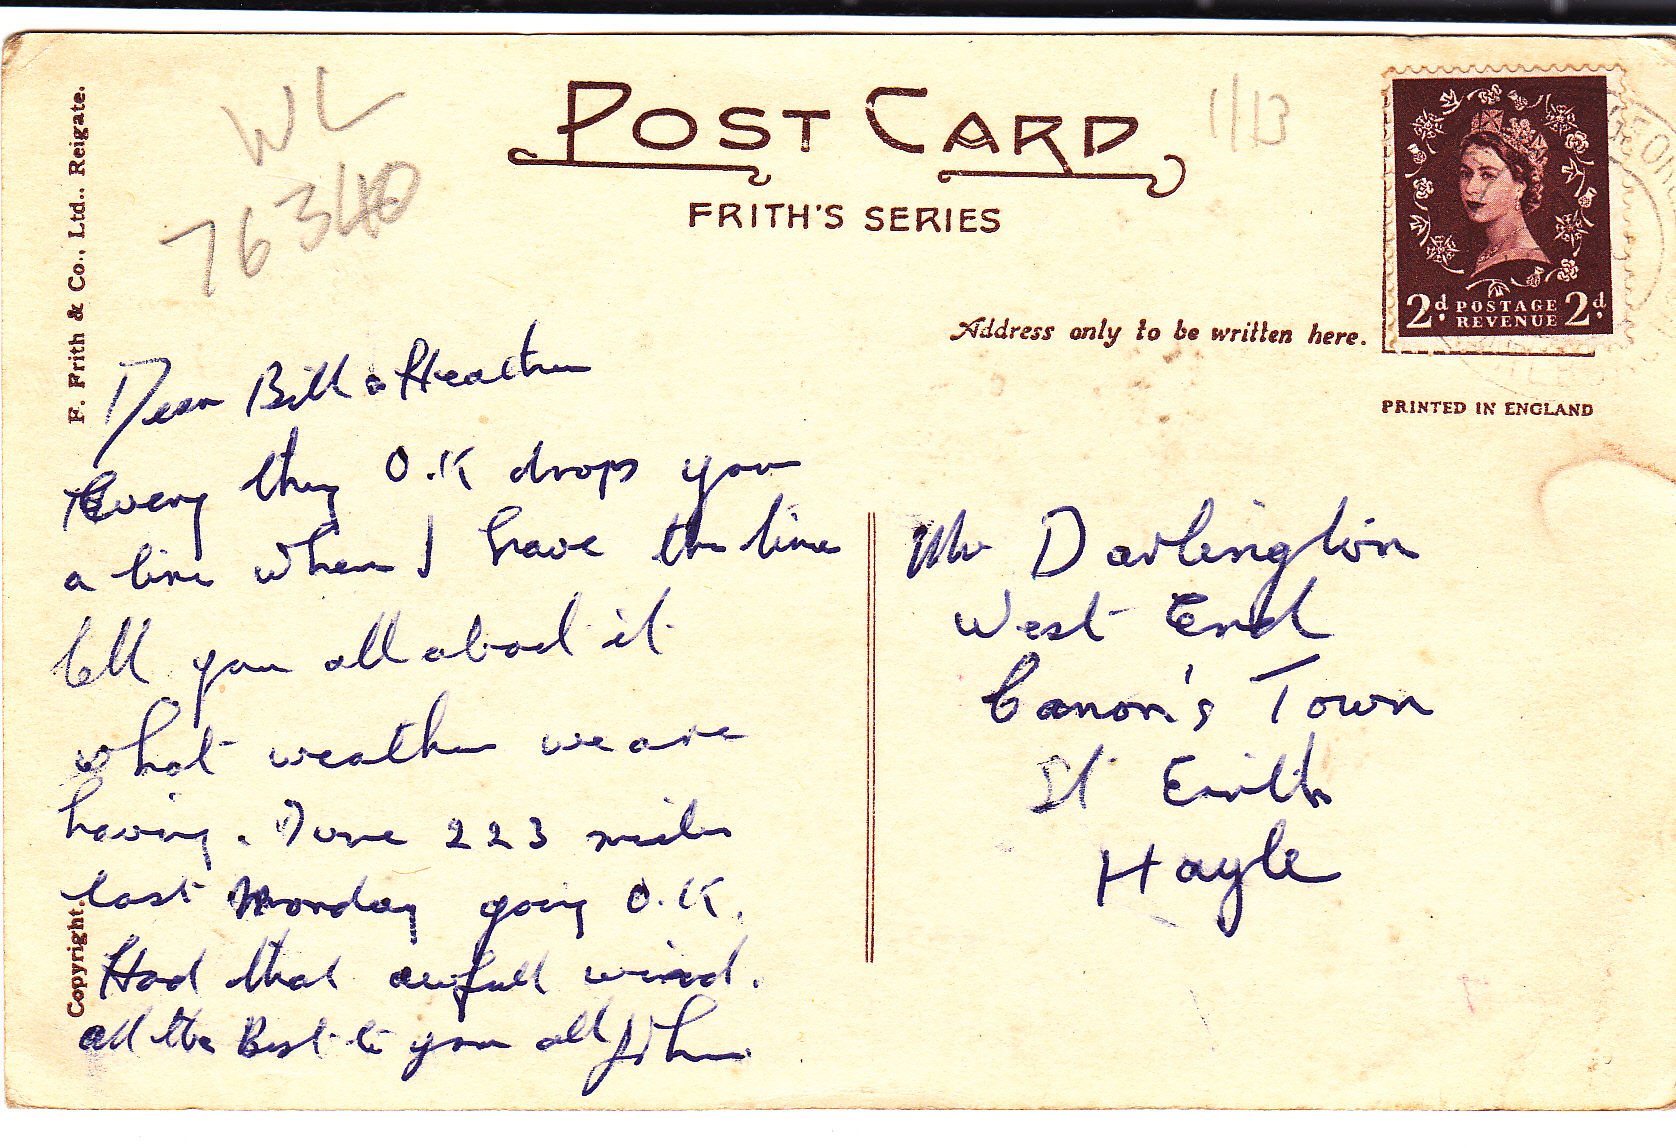 WL
76340
POST CARD
1/13
FRITH'S SERIES
Address only to be written here.
2d. POSTAGE REVENUE 2d.
PRINTED IN ENGLAND
F. Frith & Co., Ltd., Reigate.
Copyright.
Dear Bill & Heather
Every thing O.K drops you
a line when I have the time
tell you all about it
what weather we are
having. Done 223 miles
last Monday going O.K.
Had that awfull wind.
all the Best to you all John.
Mr Darlington
West End
Canon's Town
St Erith
Hayle